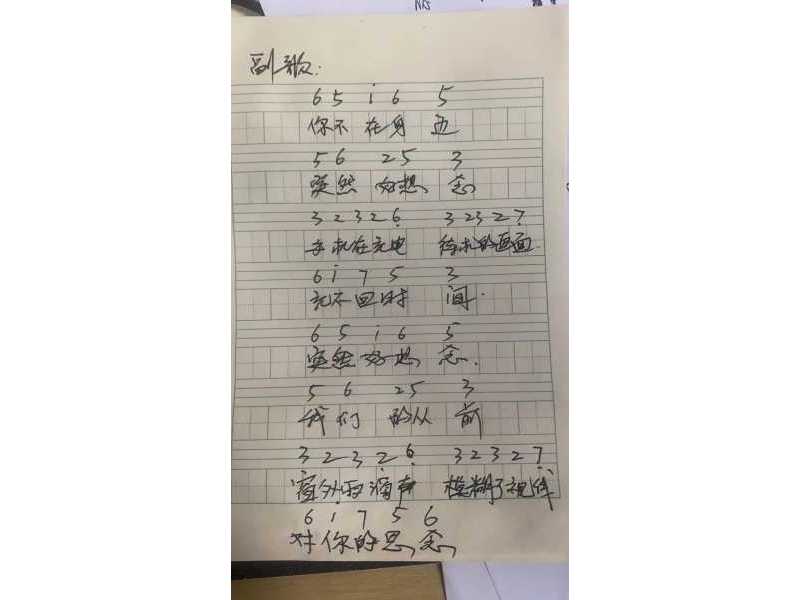 副歌:
6 5 i 6 5
你不在身边
5 6 2 5 3
突然好想念
3 2 3 2 6̣ 3 2 3 2 7̣
手机在充电 待机的画面
6 i 7 5 3
充不回时间.
6 5 i 6 5
突然好想念.
5 6 2 5 3
我们的从前
3 2 3 2 6̣ 3 2 3 2 7̣
窗外雨滴声 模糊了视线
6 i 7 5 6
对你的思念